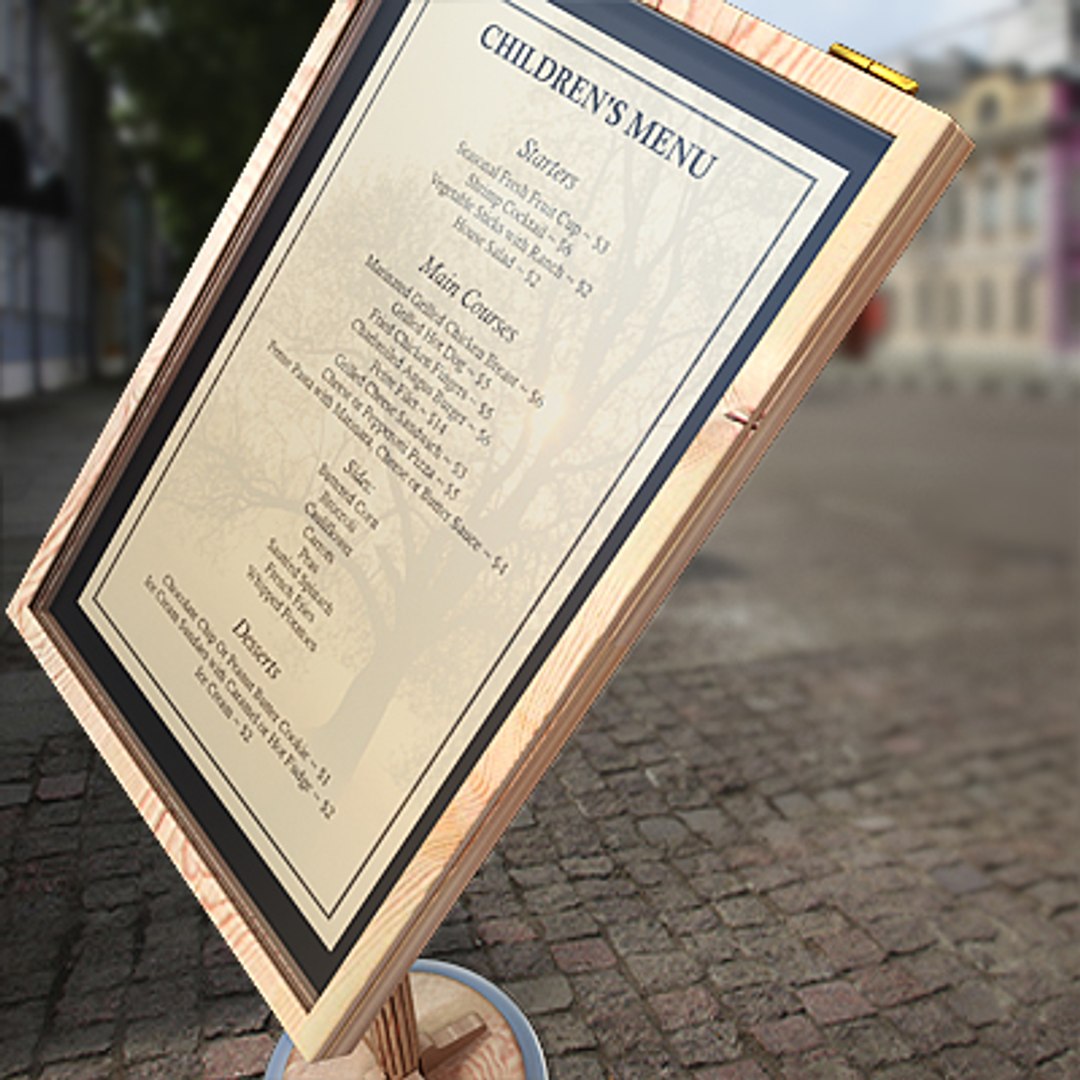 CHILDREN'S MENU
Starters
Seasonal Fresh Fruit Cup ~ $3
Shrimp Cocktail ~ $6
Vegetable Sticks with Ranch ~ $2
House Salad ~ $2
Main Courses
Marinated Grilled Chicken Breast ~ $6
Grilled Hot Dog ~ $5
Fried Chicken Fingers ~ $5
Charbroiled Angus Burger ~ $6
Petite Filet ~ $14
Grilled Cheese Sandwich ~ $3
Cheese or Pepperoni Pizza ~ $5
Penne Pasta with Marinara, Cheese or Butter Sauce ~ $4
Sides:
Buttered Corn
Broccoli
Cauliflower
Carrots
Peas
Sautéed Spinach
French Fries
Whipped Potatoes
Desserts
Chocolate Chip Or Peanut Butter Cookie ~ $1
Ice Cream Sundaes with Caramel or Hot Fudge ~ $2
Ice Cream ~ $2